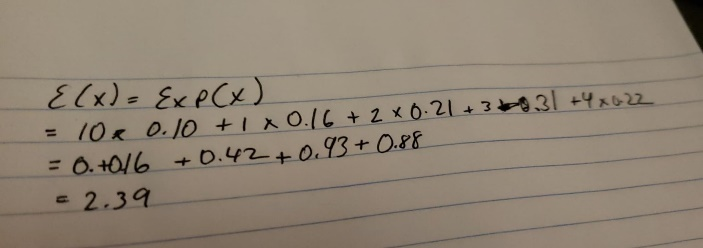 Ɛ(x) = Ɛxp(x)
= 10 x 0.10 + 1 x 0.16 + 2 x 0.21 + 3 x 0.31 + 4 x 0.22
= 0.+016 + 0.42 + 0.93 + 0.88
= 2.39